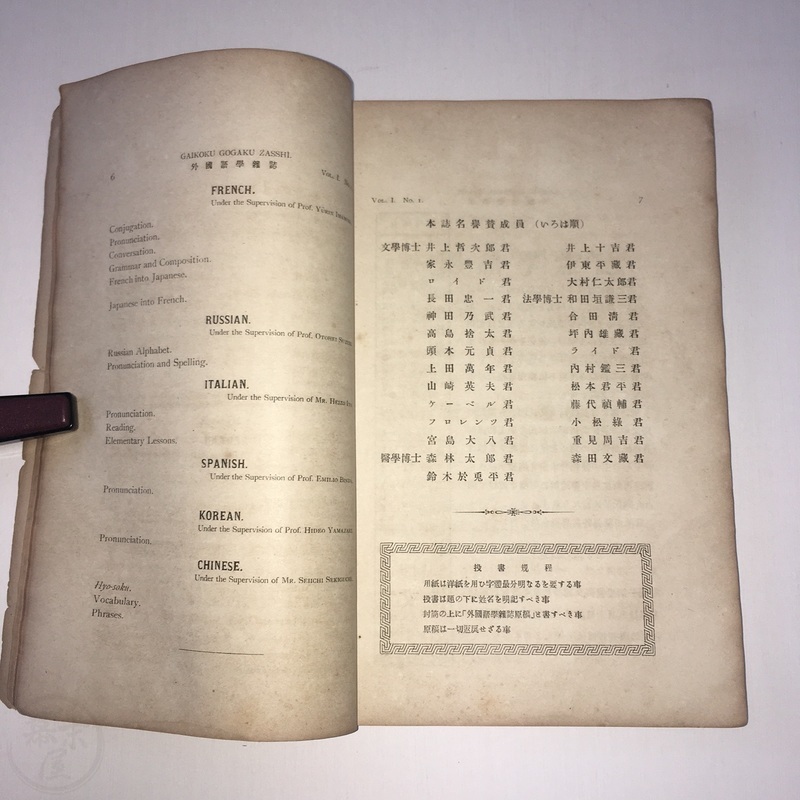 GAIKOKU GOGAKU ZASSHI.
6 外國語學雜誌 VOL. I. No.
FRENCH.
Under the Supervision of Prof.
Conjugation.
Pronunciation.
Conversation.
Grammar and Composition.
French into Japanese.
Japanese into French.
RUSSIAN.
Under the Supervision of Prof.
Russian Alphabet.
Pronunciation and Spelling.
ITALIAN.
Under the Supervision of MR.
Pronunciation.
Reading.
Elementary Lessons.
SPANISH.
Under the Supervision of Prof. EMILIO
Pronunciation.
KOREAN.
Under the Supervision of Prof. HIDEO
Pronunciation.
CHINESE.
Under the Supervision of MR. SEIICHI
Hyo-soku.
Vocabulary.
Phrases.
VOL. I. No. 1. 7
本誌名譽賛成員(いろは順)
文學博士 井上哲次郎君 井上十吉君
家永豊吉君 伊東平藏君
ロイド君 大村仁太郎君
長田忠一君 法學博士 和田垣謙三君
神田乃武君 合田淸君
高島捨太君 坪內雄藏君
頭本元貞君 ライド君
上田萬年君 內村鑑三君
山崎英夫君 松本君平君
ケーベル君 藤代禎輔君
フロレンツ君 小松綠君
宮島大八君 重見周吉君
醫學博士 森林太郎君 森田文藏君
鈴木於兎平君
投書規程
用紙は洋紙を用ひ字體最分明なるを要する事
投書は題の下に姓名を明記すべき事
封筒の上に「外國語學雜誌原稿」と書すべき事
原稿は一切返戻せざる事